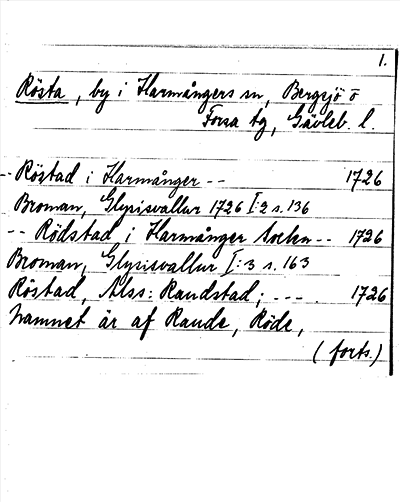 1.
Rösta, by i Harmångers sn, Bergsjö o
Forsa tg, Gävleb. l.
-- Röstad i Harmånger -- 1726
Broman, Glysisvallur 1726 I:2 s. 136
-- Rödstad i Harmånger Sockn -- 1726
Broman, Glysisvallur I:3 s. 163
Röstad, Alss: Raudstad; --- . 1726
namnet är af Raude, Röde,
(forts.)